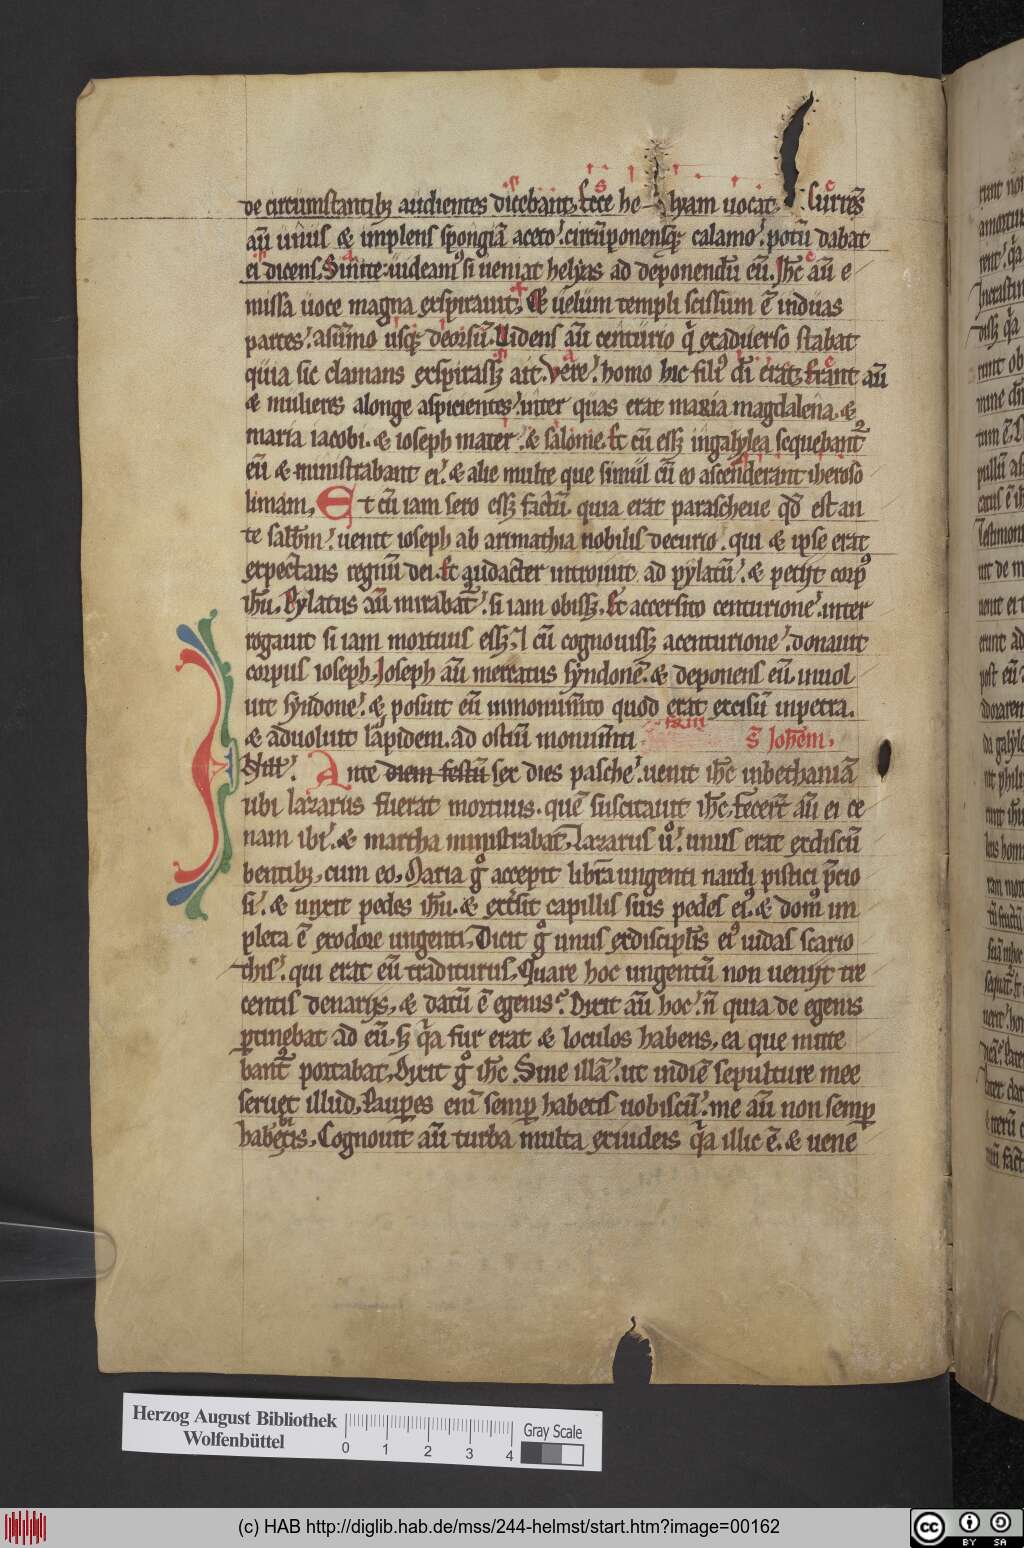 de circumstantibꝫ audientes dicebant. Ecce he lyam uocat. Curres
aū unus & implens spongiā aceto. circūponensqꝫ calamo. potū dabat
ei dicens. Sinite uideamꝰ si ueniat helyas ad deponendū eū. Ih̄c aū e
missa uoce magna exspirauit. & uelum templi scissum ē in duas
partes. asūmo usqꝫ deorsū. Uidens aū centurio q̄ exaduerso stabat
quia sic clamans exspirassꝫ ait. Vere homo hic filiꝰ di erat. Erant aū
& mulieres alonge aspicientes. inter quas erat maria magdalena. &
maria iacobi. & ioseph mater. & salome. Et cū essꝫ ingalylea sequebantꝰ
eū & ministrabant ei. & alie multe que simul cū eo ascenderant iheroso
limam. Et cū iam sero essꝫ factū. quia erat parasceue qd̄ est an
te sabb̄m. uenit ioseph ab arimathia nobilis decurio. qui & ipse erat
expectans regnū dei. Et audacter introiuit ad pylatū. & petijt corpꝰ
ih̄u. Pylatus aū mirabat̄. si iam obissꝫ. Et accersito centurione. inter
rogauit si iam mortuus essꝫ. cū cognouissꝫ acenturione. donauit
corpus ioseph. Ioseph aū mercatus syndonē. & deponens eū. inuol
uit syndone. & posuit eū inmonum̄to quod erat excisū inpetra.
& aduoluit lapidem. ad ostiū monum̄ti
S Ioh̄em.
Ante diem festū sex dies pasche. uenit ih̄c inbethaniā
ubi lazarus fuerat mortuus. quē suscitauit ih̄c. fecert̄ aū ei ce
nam ibi. & martha ministrabat. Lazarus ů. unus erat exdiscū
bentibꝫ. cum eo. Maria gͦ accepit librā ungenti nardi pistici p̄cio
si. & unxit pedes ih̄u. & extsit capillis suis pedes eiꝰ. & domꝰ im
pleta ē exodore ungenti. Dicit gͦ unus exdiscipl̄is eiꝰ iudas scario
this. qui erat eū traditurus. Quare hoc ungentū non uenijt tre
centis denarijs. & datū ē egenis. Dixit aū hoc. n̄ quia de egenis
ꝑtinebat ad eū. sꝫ q̄a fur erat & loculos habens. ea que mitte
bantꝰ portabat. Dyxit gͦ ih̄c. Sine illā. ut indiē sepulture mee
seruet illud. Pauꝑes enī semꝑ habetis uobiscū. me aū non semꝑ
habetis. Cognouit aū turba multa exiudeis q̄a illic ē. & uene
Herzog August Bibliothek
Wolfenbüttel
0 1 2 3 4
Gray Scale
(c) HAB http://diglib.hab.de/mss/244-helmst/start.htm?image=00162
cc BY SA